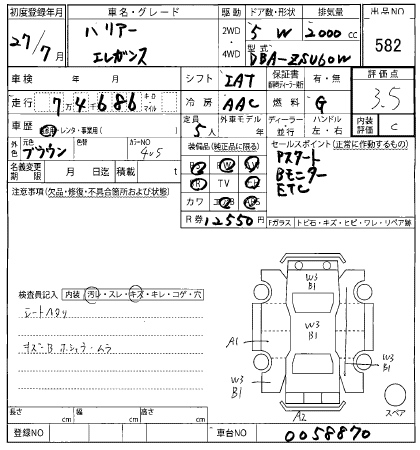 初度登録年月 車名・グレード 駆動 ドア数・形状 排気量 出品NO
27/7月 ハリアー エレガンス 2WD・4WD 5 W 2000cc 582
型式 DBA-ZSU60W
車検 年 月 シフト IAT 保証書 有・無 評価点
走行 7 4 6 8 6 キロ・マイル 冷房 AAC 燃料 G 3.5
車歴 自家・レンタ・事業用( ) 定員 5人 外車モデル 年 ディーラー・並行 ハンドル 左・右 内装評価 C
外色 元色 ブラウン 色替 カラーNO 4U5
装備品(純正品に限る) セールスポイント(正常に作動するもの)
Pスタート
Bモニター
ETC
名義変更期限 月 日迄 積載 t
SR TV
カワ エアB ABS
注意事項(欠品・修復・不具合箇所および状態)
R券 12550円 Fガラス トビ石・キズ・ヒビ・ワレ・リペア跡
検査員記入 内装 汚レ・スレ・キズ・キレ・コゲ・穴
シートヘタリ
キズB ホシュウ・ムラ
W3
B1
W3
B1
A1
W3
B1
W3
B1
A2
スペア
長さ cm 幅 cm 高さ cm
登録NO 車台NO 0058870